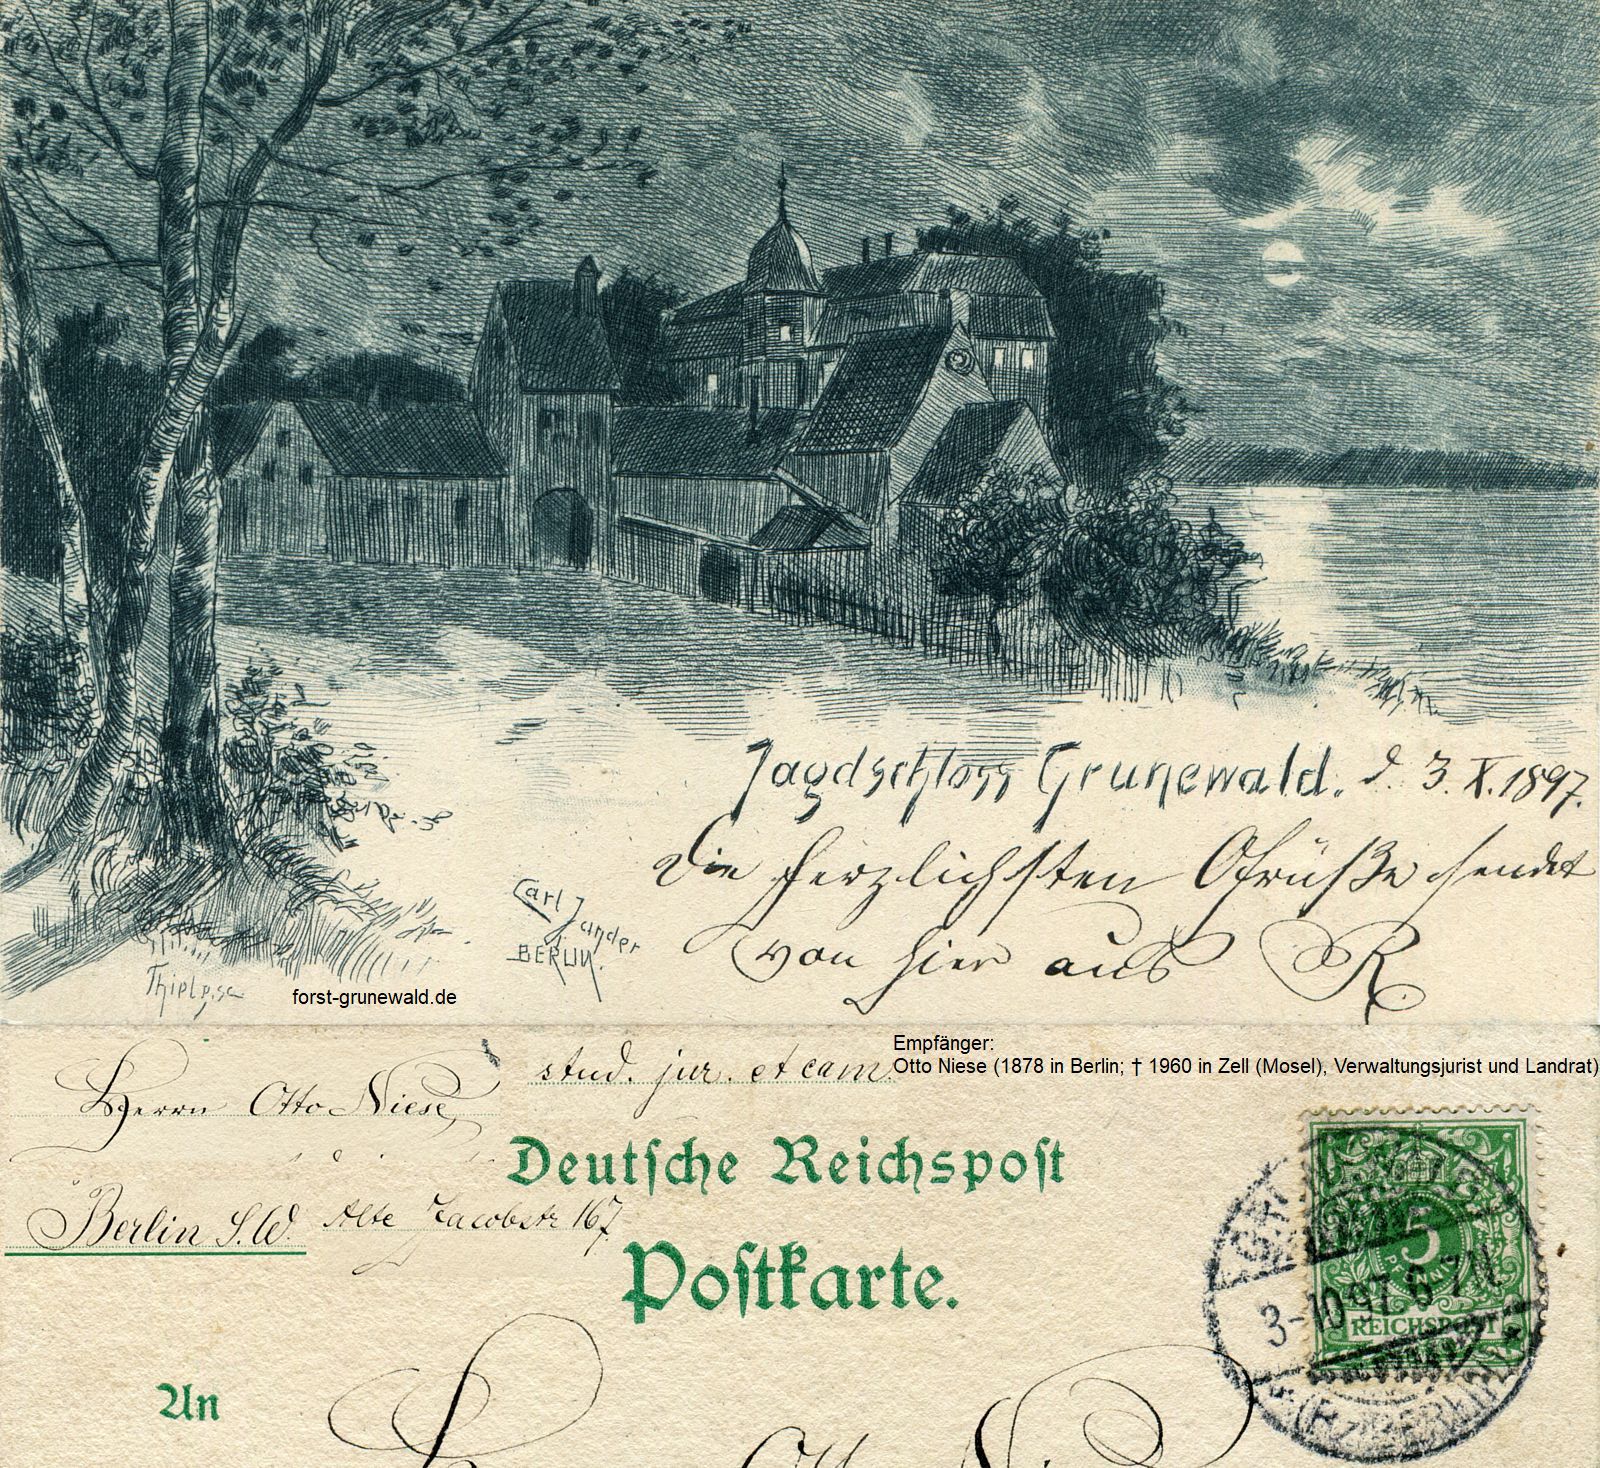 Jagdschloss Grunewald. d. 3. X. 1897.
Die herzlichsten Grüße sendet
von hier aus R
Carl Jander
BERLIN.
Thiel p. sc
forst-grunewald.de
Empfänger:
Otto Niese (1878 in Berlin; † 1960 in Zell (Mosel), Verwaltungsjurist und Landrat)
stud. jur. et cam.
Herrn Otto Niese
Deutsche Reichspost
Berlin S.W. Alte Jacobstr 167.
Postkarte.
5
REICHSPOST
3-10 97 6-7N
An
Otto Nie